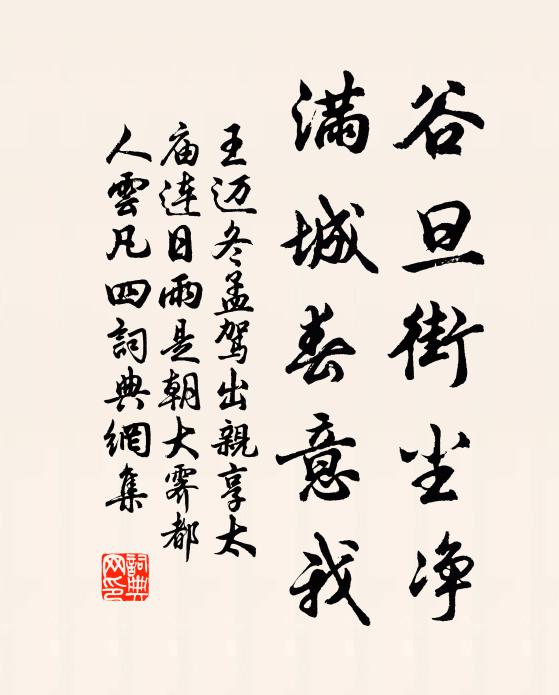 谷旦街尘净
满城春意我
王迈冬孟驾出親享太
庙连日雨是朝大霁都
人雲凡四詞典網集
詞典
网印